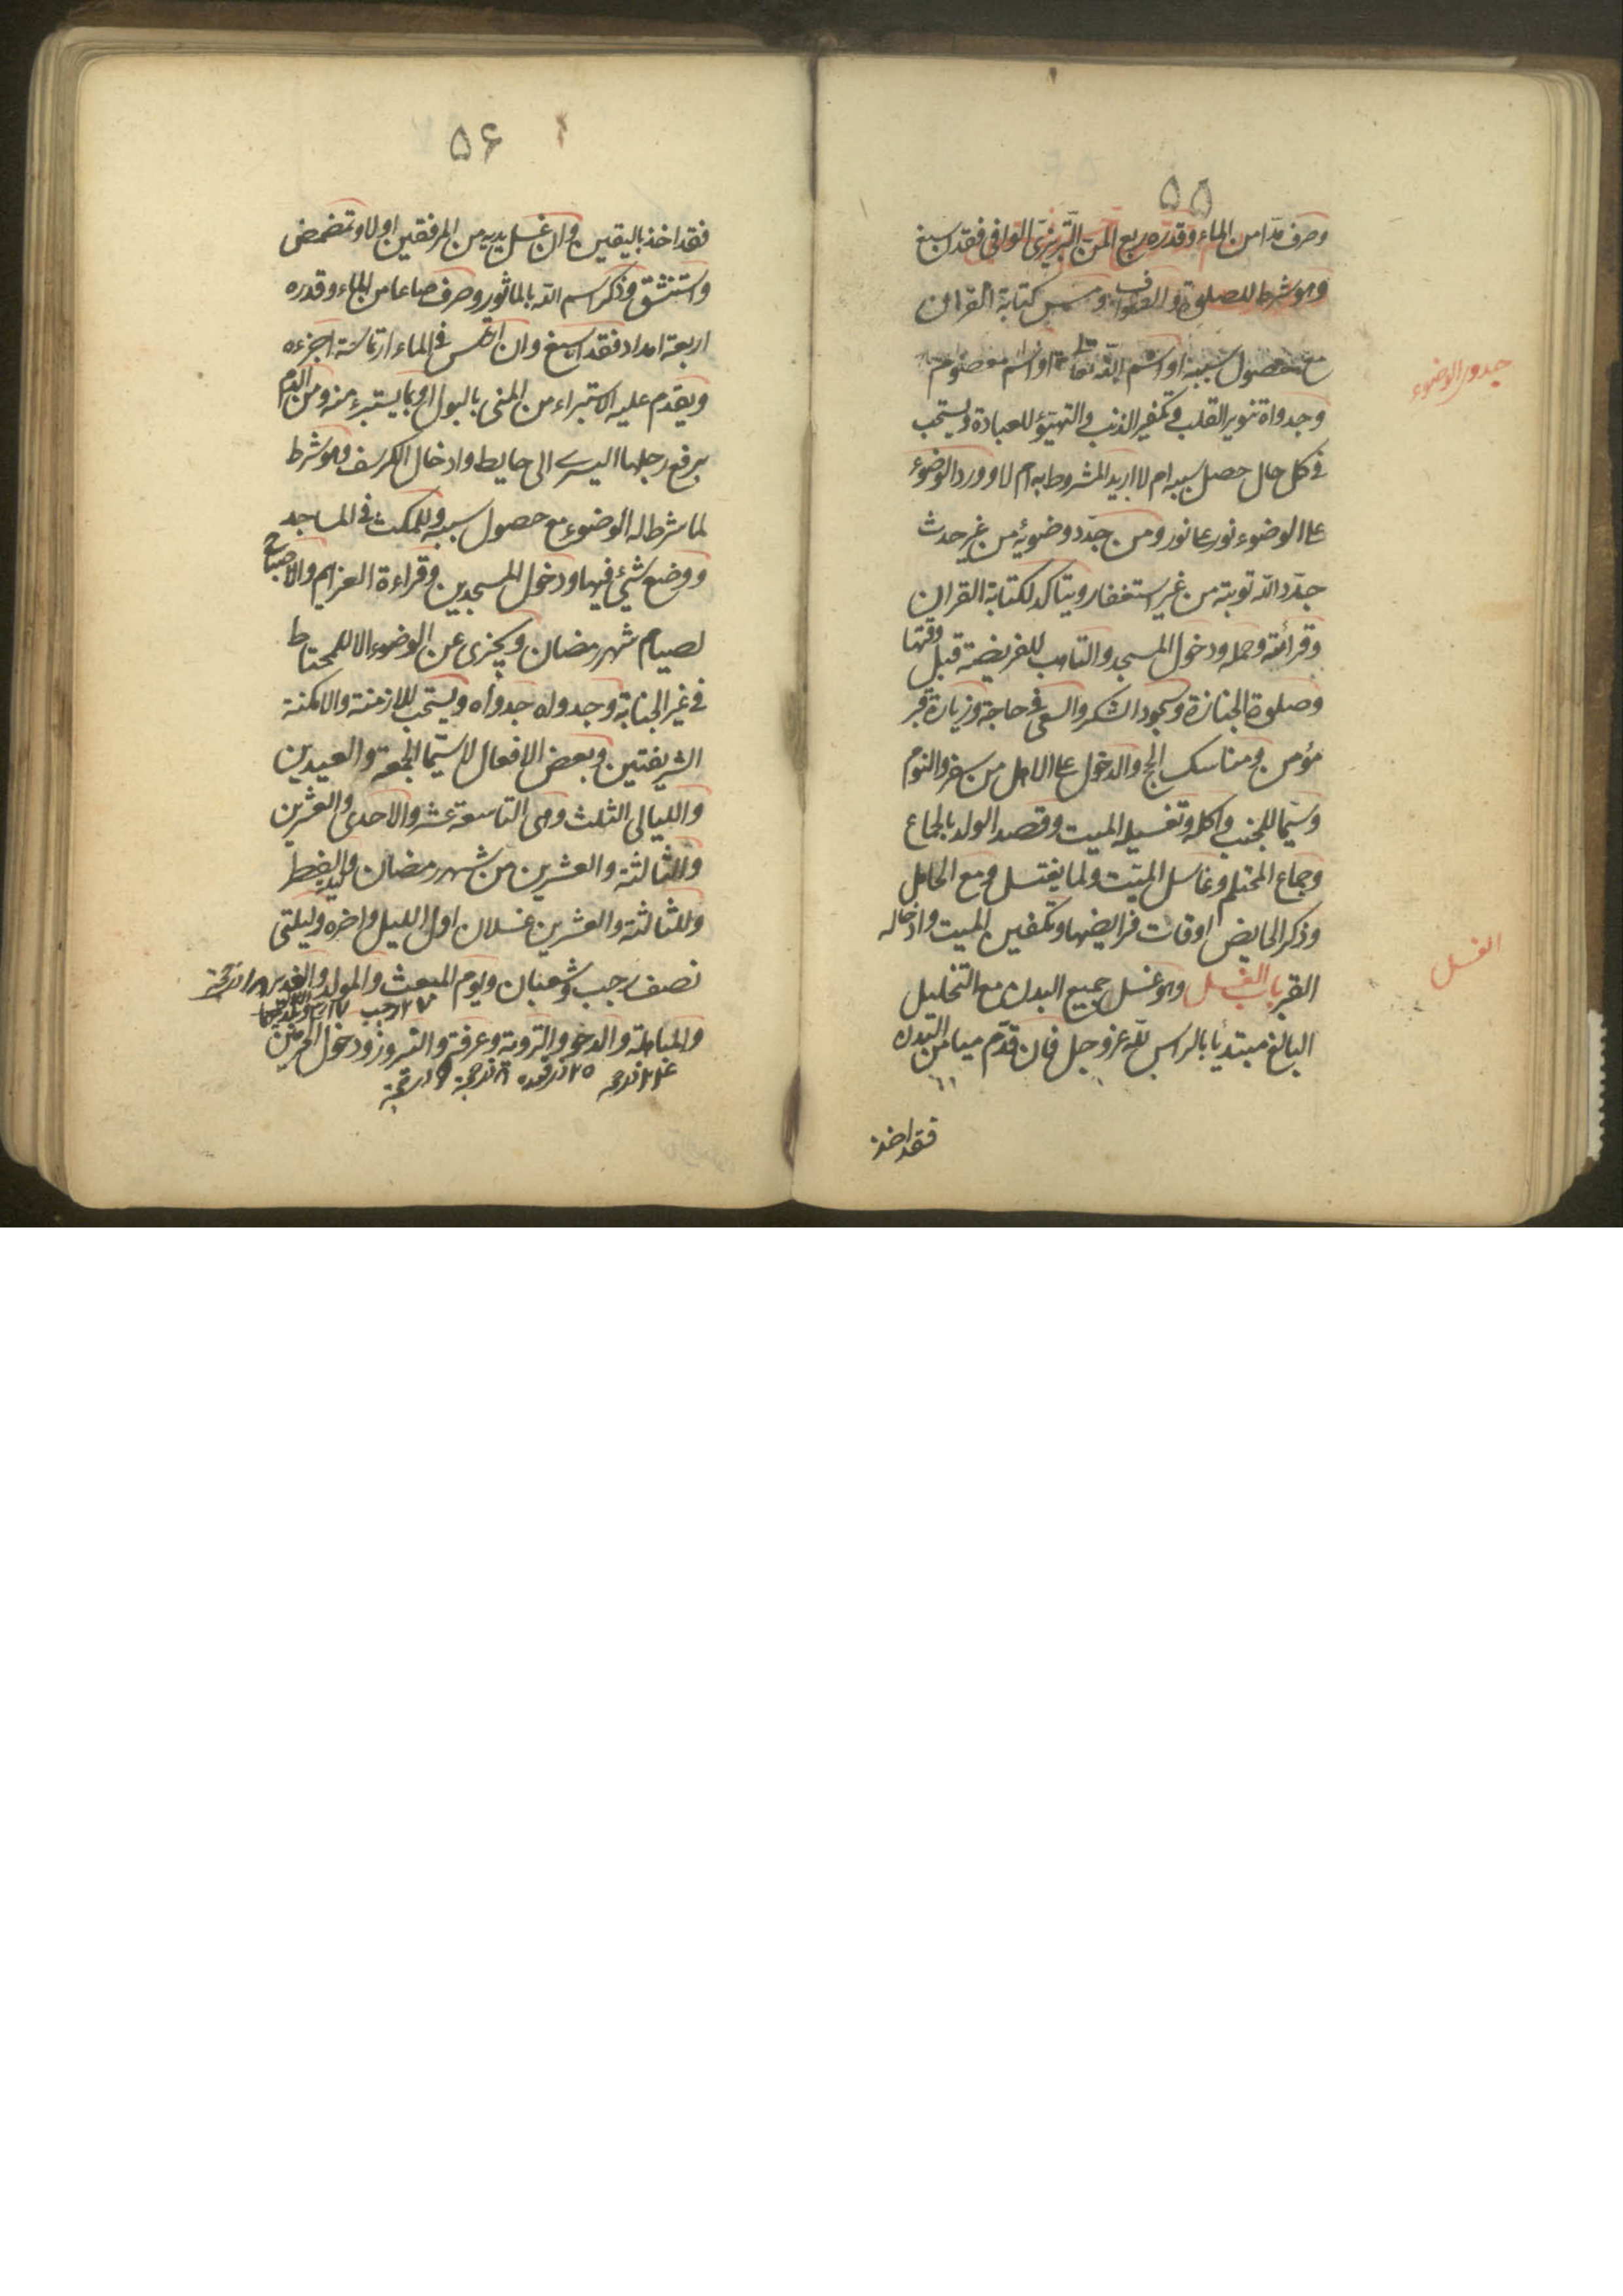 ۵۵
وصرف مدا من الماء وقدره ربع المن التبريزى الوافى فقد اسبغ
وهو شرط للصلوة والطواف ومس كتابة القران
مع حصول سببه او اسم الله تعا او اسم معصوم
جدوى الوضوء
وجدواه تنوير القلب وتكفير الذنب والتهيؤ للعبادة ويستحب
فى كل حال حصل سببه ام لا اريد المشروط به ام لا وورد الوضوء
على الوضوء نور على نور ومن جدد وضوئه من غير حدث
جدد الله توبته من غير استغفار ويتاكد لكتابة القران
وقرائته وحمله ودخول المسجد والتاهب للفريضة قبل وقتها
وصلوة الجنازة وسجود الشكر والسعى فى حاجة وزيارة قبر
مؤمن ومناسك الحج والدخول على الاهل من سفر والنوم
وسيما للجنب واكله وتغسيله الميت وقصد الولد بالجماع
وجماع المحتلم وغاسل الميت ولما يغتسل ومع الحامل
وذكر الحايض اوقات فرايضها وتكفين الميت وادخاله
القبر باب الغسل وهو غسل جميع البدن مع التخليل
الغسل
البالغ مبتدئا بالراس لله عز وجل فان قدم ميامن البدن
فقد اخذ
۵۶
فقد اخذ باليقين وان غسل يديه من المرفقين اولا وتمضمض
واستنشق وذكر اسم الله بالماثور وصرف صاعا من الماء وقدره
اربعة امداد فقد اسبغ وان ارتمس فى الماء ارتماسة اجزءه
ويقدم عليه الاستبراء من المنى بالبول او بما يستبرء منه ومن الدم
برفع رجلها اليسرى الى حايط وادخال الكرسف وهو شرط
لما شرط له الوضوء مع حصول سببه وللمكث فى المساجد
ووضع شئ فيها ودخول المسجدين وقراءة العزايم والاصباح
لصيام شهر رمضان ويجزى عن الوضوء الا للمحتاط
فى غير الجنابة وجدواه جدواه ويستحب للازمنة والامكنة
الشريفتين وبعض الافعال لا سيما الجمعة والعيدين
والليالى الثلث وهى التاسعة عشر والاحدى والعشرين
والثالثة والعشرين من شهر رمضان وليلة الفطر
وللثالثة والعشرين غسلان اول الليل واخره وليلتى
نصف رجب وشعبان ويوم المبعث والمولد والغدير ۱۸ ذيحجة
۲۷ رجب ۱۷
والمباهلة والدحو والتروية وعرفة والنيروز ودخول الحرمين
۲۴ ذيحجه ۲۵ ذيقعده ۸ ذيحجة ۹ ذيحجة